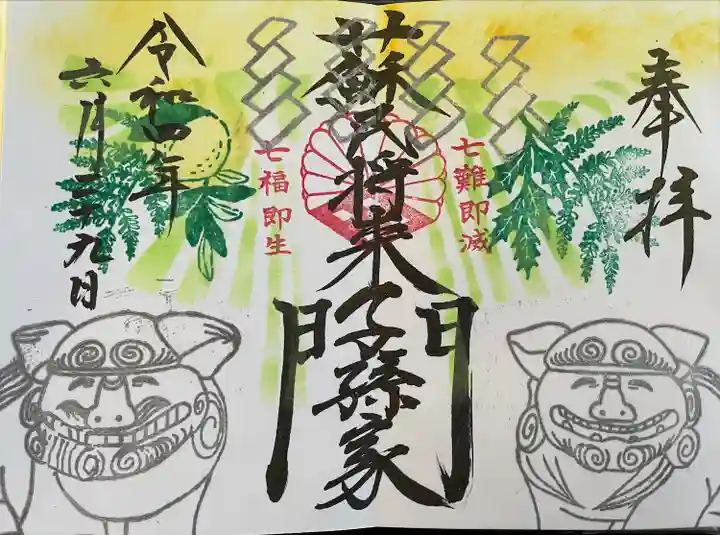 奉拝
七難即滅
蘇民将来子孫家門
七福即生
令和四年
六月二十九日